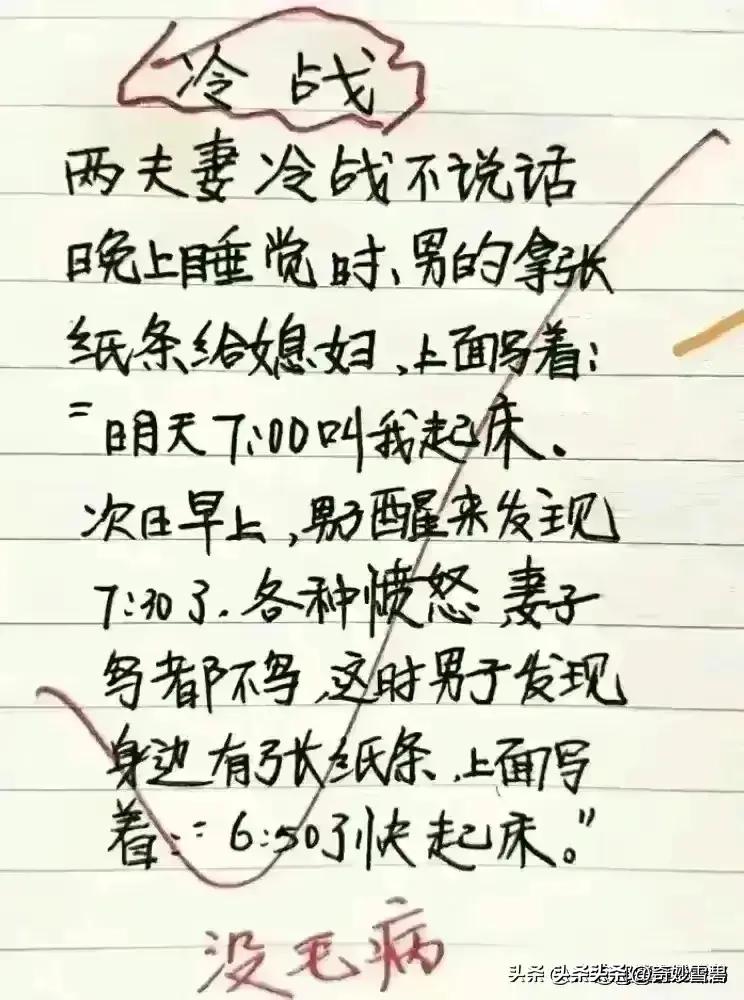 冷战
两夫妻冷战不说话
晚上睡觉时、男的拿张
纸条给媳妇,上面写着:
"明天7:00叫我起床.
次日早上,男子醒来发现
7:30了.各种愤怒,妻子
鸟都不鸟,这时男子发现
身边有张纸条,上面写
着:"6:50了快起床。"
没毛病
头条 @奇妙雪碧